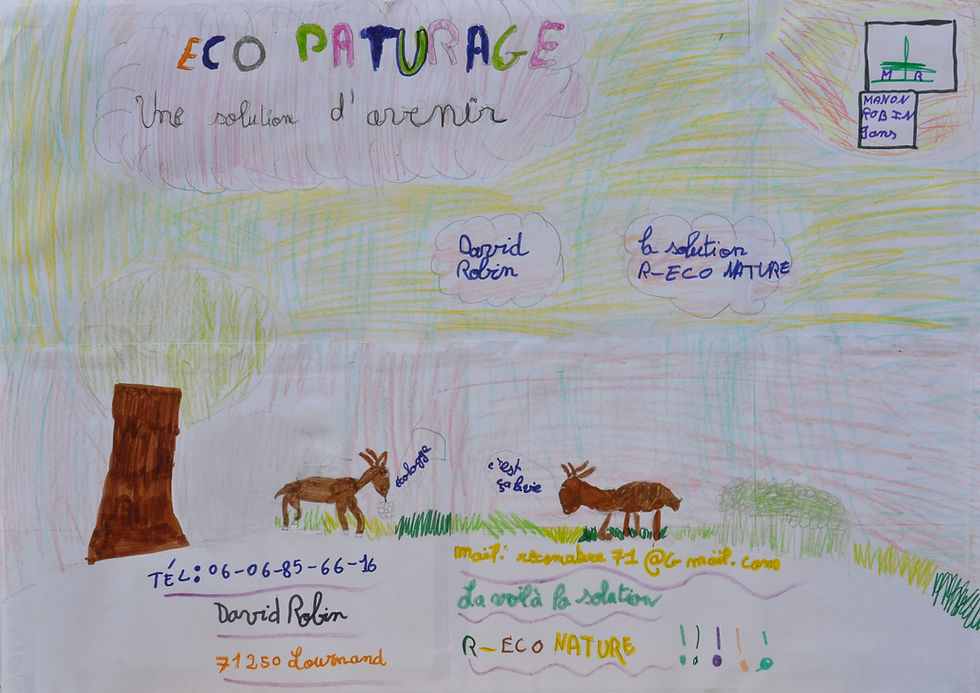 ECO PATURAGE
Une solution d'avenir
M R
MANON
ROBIN
David
Robin
la solution
R-ECO NATURE
écologie
c'est
ça la vie
TÉL: 06-06-85-66-16
David Robin
71250 Lournand
mail: reconature 71 @G mail. com
La voilà la solution
R-ECO NATURE !!!!!